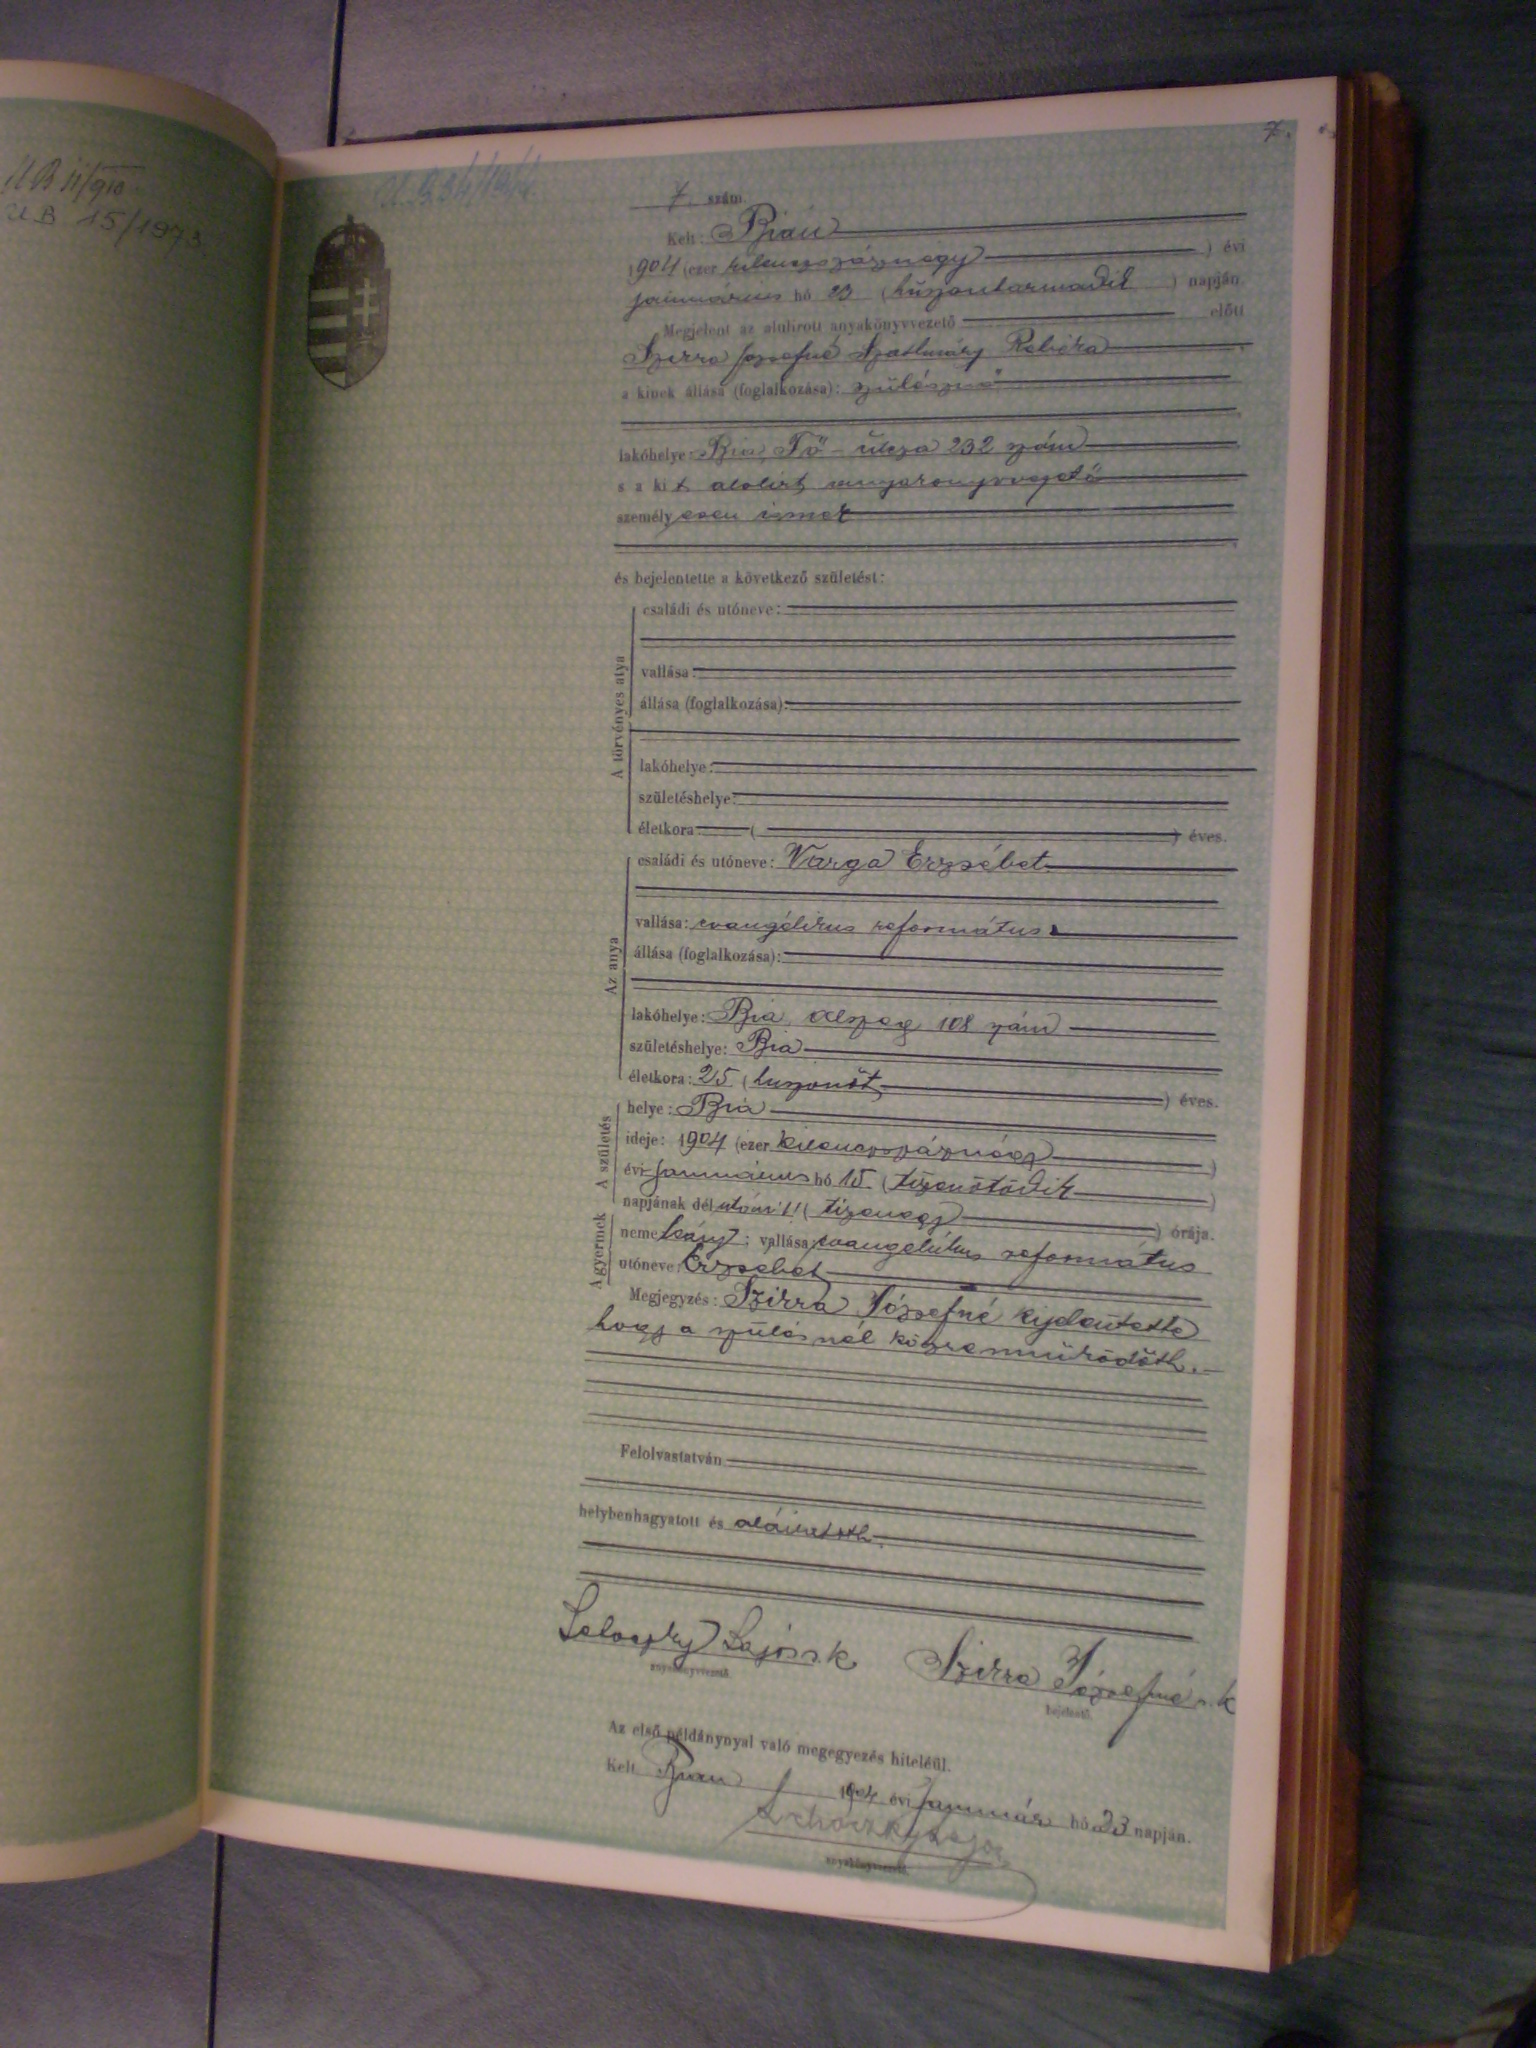 UB 15/1973.
7.
7. szám.
Kelt: Bián
1904 (ezer kilenczszáznégy) évi
januárius hó 23 (huszonharmadik) napján.
Megjelent az alulirott anyakönyvvezető előtt
Szirra Józsefné Szathmáry Rebeka
a kinek állása (foglalkozása): szülésznő
lakóhelye: Bia, Fő-utcza 232 szám
s a kit alolirt anyakönyvvezető
személyesen ismer
és bejelentette a következő születést:
A törvényes atya
családi és utóneve:
vallása:
állása (foglalkozása):
lakóhelye:
születéshelye:
életkora ( ) éves.
Az anya
családi és utóneve: Varga Erzsébet
vallása: evangélikus református
állása (foglalkozása):
lakóhelye: Bia, Alszeg 108 szám
születéshelye: Bia
életkora: 25 (huszonöt) éves.
A születés
helye: Bia
ideje: 1904 (ezer kilenczszáznégy)
évi januárius hó 15. (tizenötödik)
napjának délután 11 (tizenegy) órája.
A gyermek
neme leány; vallása: evangelikus református
utóneve: Erzsébet
Megjegyzés: Szirra Józsefné kijelentette
hogy a szülésnél közremüködött.
Felolvastatván
helybenhagyatott és aláiratott.
Lajos s. k. Szirra Józsefné s. k.
anyakönyvvezető. bejelentő.
Az első példánynyal való megegyezés hiteléül.
Kelt Bián 1904 évi január hó 23 napján.
Lajos
anyakönyvvezető.